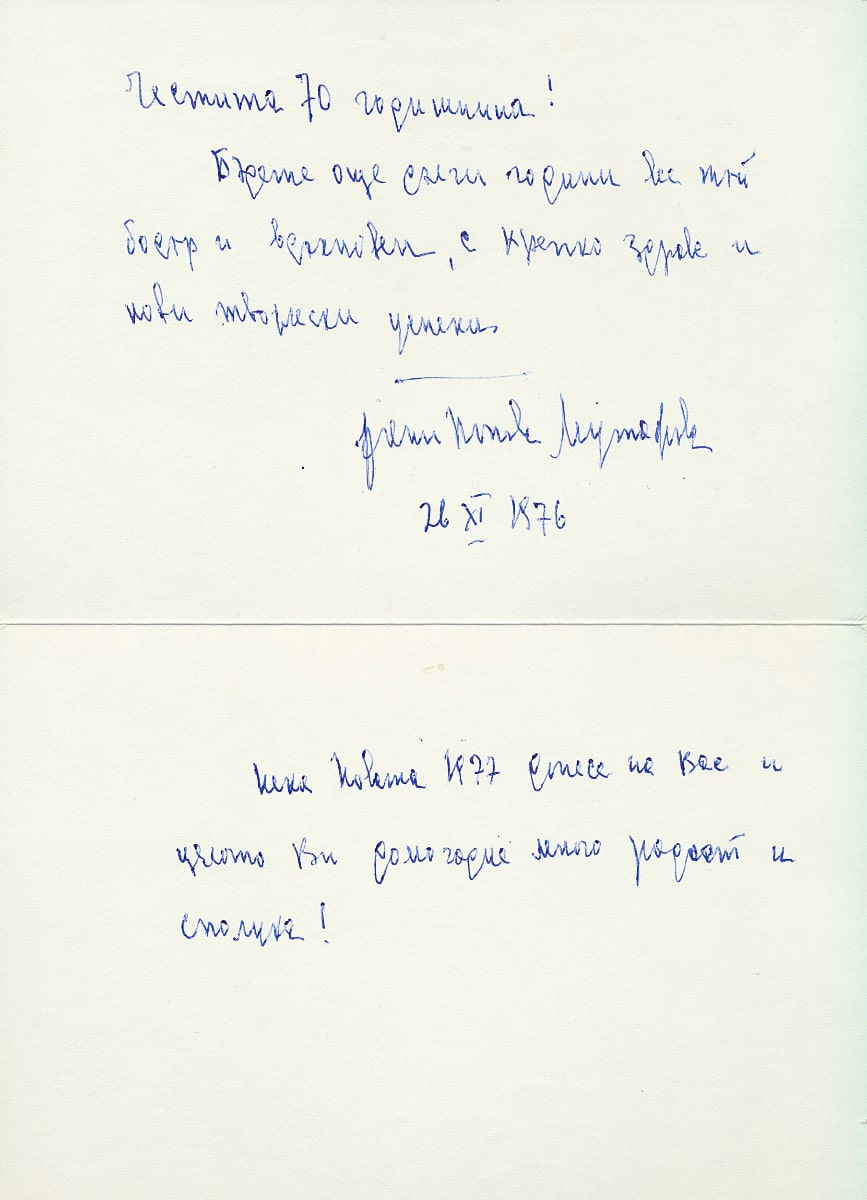 Честита 70 годишнина!
Бъдете още дълги години все тъй
бодър и вдъхновен, с крепко здраве и
нови творчески успехи.
Попова Мутафова
26 XI 1976
Нека Новата 1977 донесе на Вас и
цялото Ви домочадие много радост и
сполука!